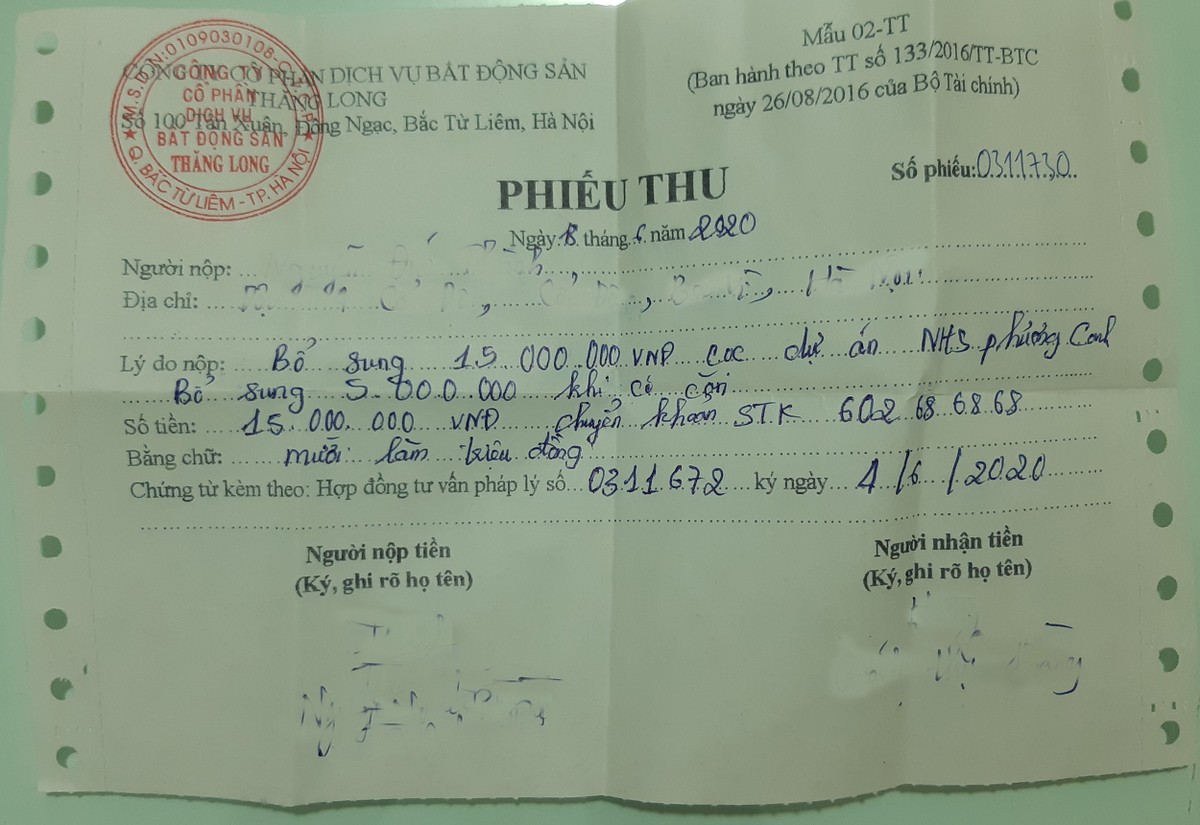 M.S.D.N:0109030108-C.T.C.P
CÔNG TY
CỔ PHẦN
DỊCH VỤ
BẤT ĐỘNG SẢN
THĂNG LONG
Q. BẮC TỪ LIÊM - TP. HÀ NỘI
CÔNG TY CỔ PHẦN DỊCH VỤ BẤT ĐỘNG SẢN
THĂNG LONG
Số 100 Tân Xuân, Đông Ngạc, Bắc Từ Liêm, Hà Nội
Mẫu 02-TT
(Ban hành theo TT số 133/2016/TT-BTC
ngày 26/08/2016 của Bộ Tài chính)
PHIẾU THU
Số phiếu:0311730
Ngày: tháng 6 năm 2020
Người nộp:
Địa chỉ:
Lý do nộp: Bổ sung 15.000.000 VNĐ cọc dự án NHS phương Canh
Bổ sung 5.000.000 khi có căn
Số tiền: 15.000.000 VNĐ chuyển khoản STK 602 68 68 68
Bằng chữ: mười lăm triệu đồng
Chứng từ kèm theo: Hợp đồng tư vấn pháp lý số 0311672 ký ngày 4/6/2020
Người nộp tiền
(Ký, ghi rõ họ tên)
Người nhận tiền
(Ký, ghi rõ họ tên)